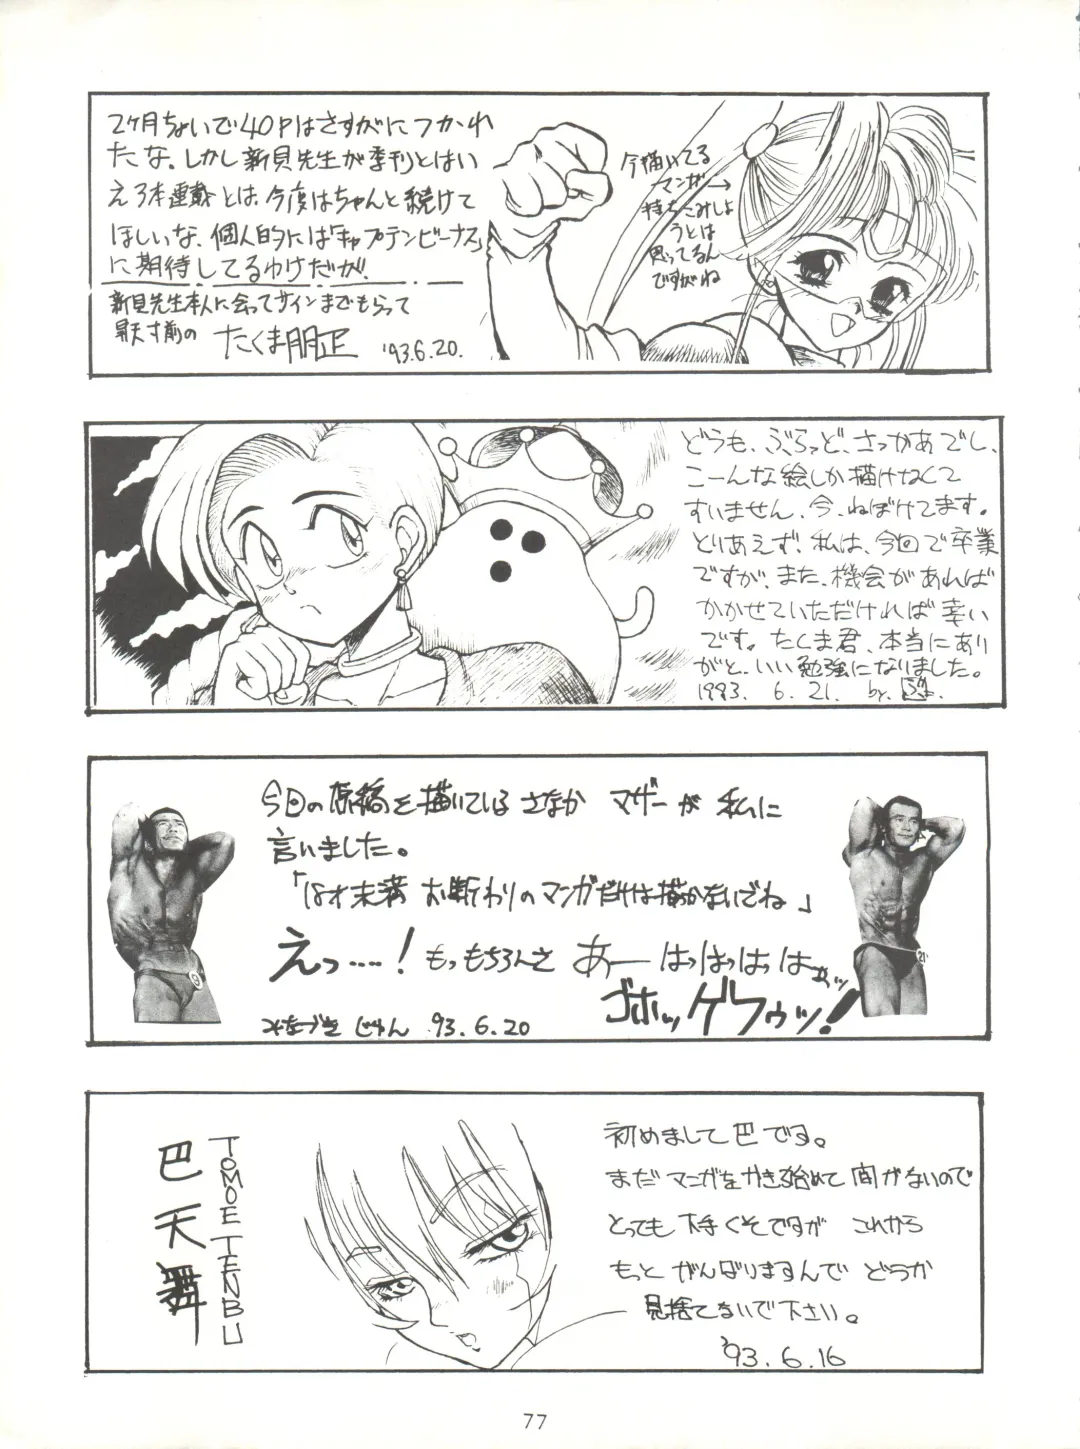 2ヶ月ちょいで40Pはさすがにつかれ
たな。しかし新貝先生が季刊とはい
え3本連載とは、今度はちゃんと続けて
ほしいな、個人的には「キャプテンビーナス」
に期待してるわけだが、
新貝先生本人に会ってサインまでもらって
昇天寸前の たくま朋正 '93.6.20.
今描いてる
マンガ→
持ちこみしよ
うとは
思ってるん
ですがね
どうも、ぶらっど、さっかあでし、
こーんな絵しか描けなくて
すいません、今、ねぼけてます。
とりあえず、私は、今回で卒業
ですが、また、機会があれば
かかせていただければ幸い
です。たくま君、本当にあり
がと、いい勉強になりました。
1993. 6. 21. by.
今回の原稿を描いているさなか マザーが 私に
言いました。
「18才未満 お断わりのマンガだけは描かないでね」
えっ……! もっもちろんさ あーはっはっはっはぁッ
ゴホッゲフゥッ!
みなづき じゅん '93.6.20
9
21
巴天舞
TOMOE TENBU
初めまして巴です。
まだマンガをかき始めて間がないので
とっても下手くそですが これから
もっと がんばりますんで どうか
見捨てないで下さい。
'93.6.16
77